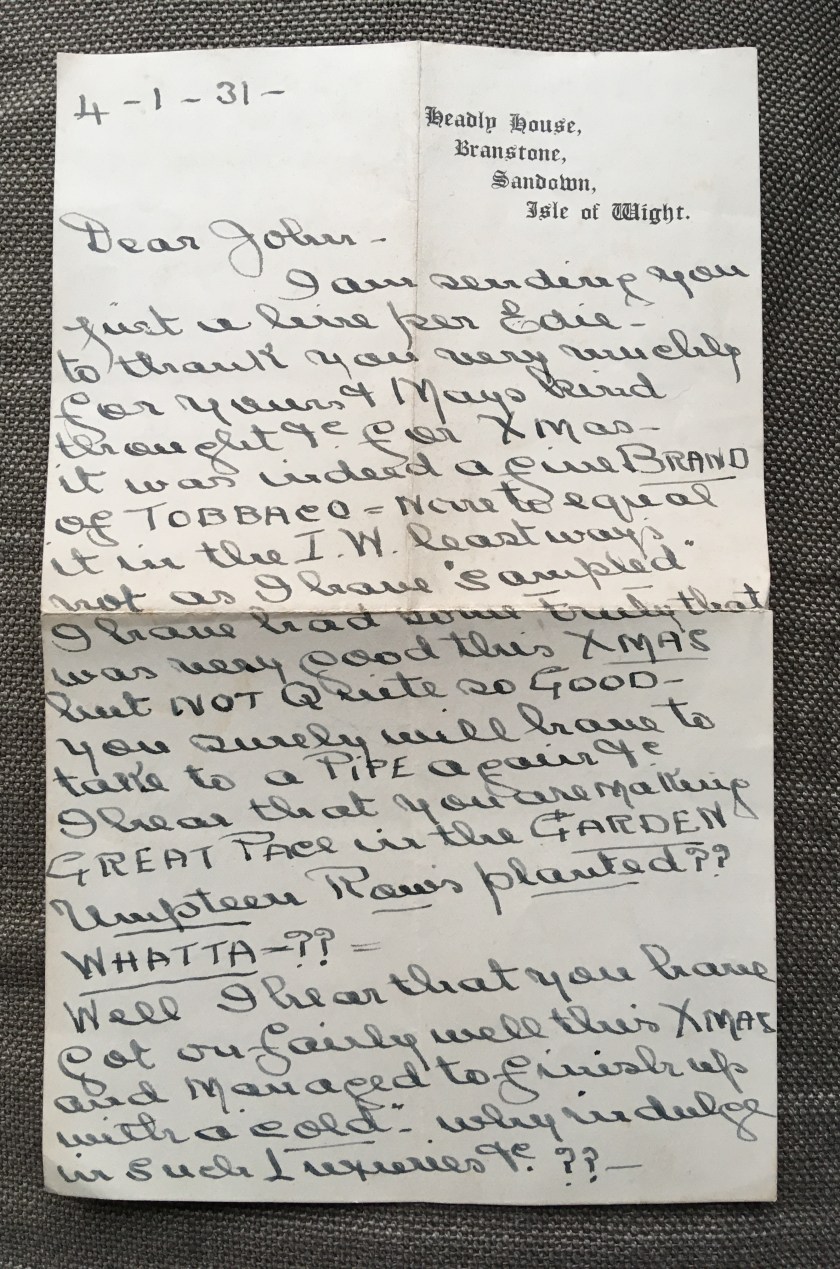 4 - 1 - 31 -
Headly House,
Branstone,
Sandown,
Isle of Wight.
Dear John -
I am sending you
just a line per Edie -
to thank you very muchly
for yours & Mays kind
thought &c for XMas -
it was indeed a fine BRAND
of TOBBACO = None to equal
it in the I.W. leastways
not as I have "sampled"
I have had some truly that
was very good this XMAS
but NOT Quite so GOOD -
you surely will have to
take to a PIPE again &c
I hear that you are making
GREAT PACE in the GARDEN
Umpteen Rows planted ??
WHATTA - ?? =
Well I hear that you have
got on fairly well this XMAS
and Managed to finish up
with a cold - why indulge
in such Luxuries &c. ?? -